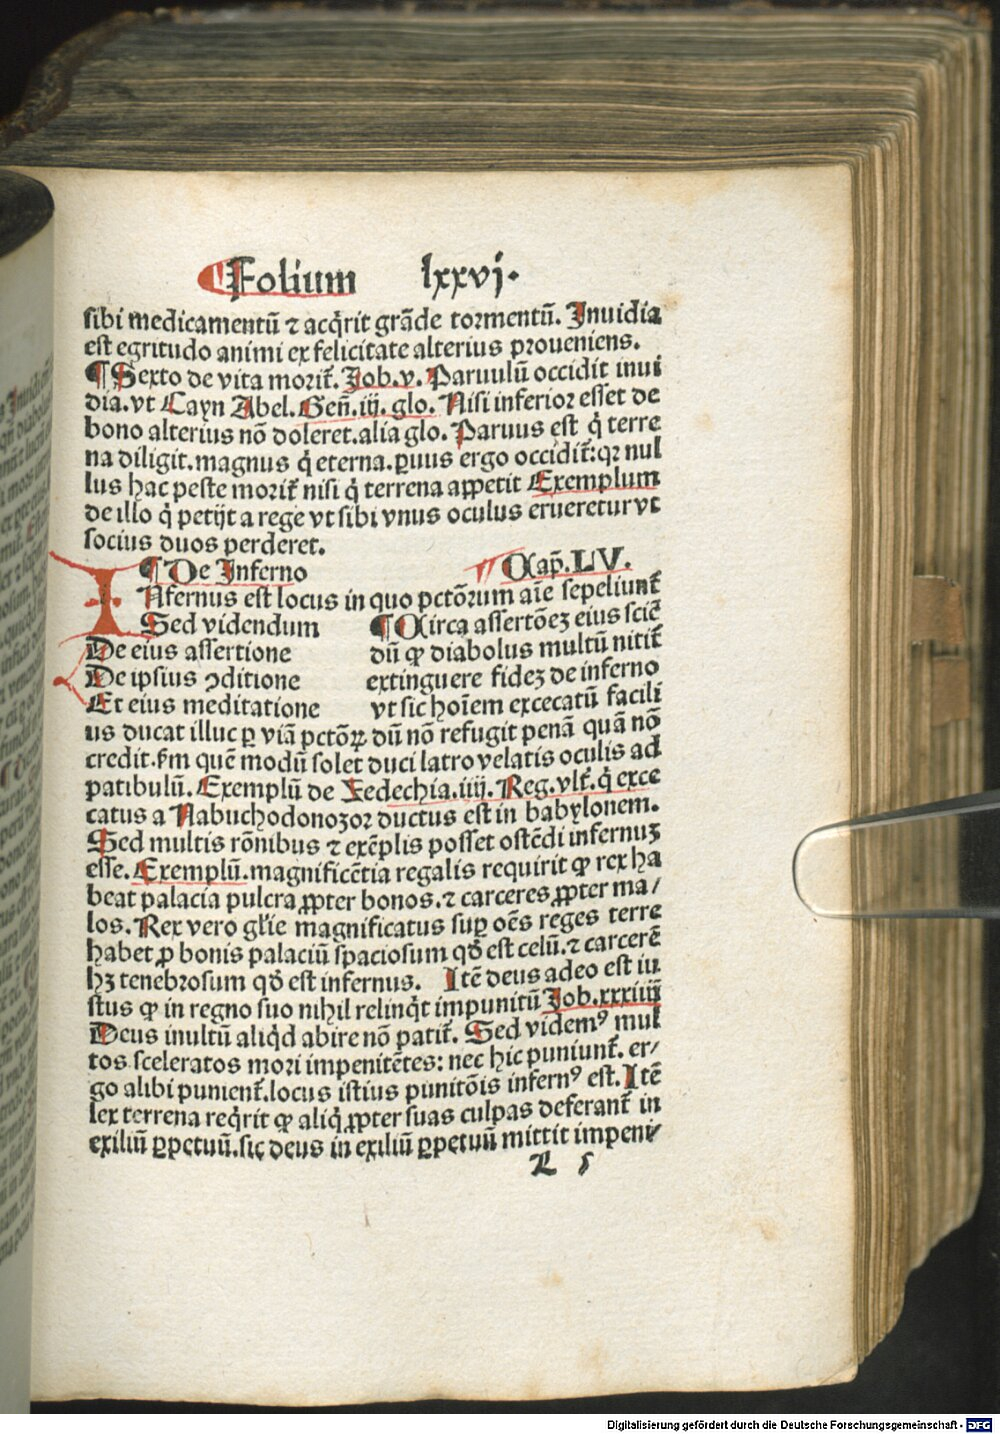 ¶Folium lxxvj.
sibi medicamentū ⁊ acq̇rit grāde tormentū. Inuidia
est egritudo animi ex felicitate alterius proueniens.
¶ Sexto de vita morit̄. Job.v. Paruulū occidit inui
dia.vt Cayn Abel. Geñ.iij. glo. Nisi inferior esset de
bono alterius nō doleret.alia glo. Paruus est q̇ terre
na diligit.magnus q̇ eterna.ꝑuus ergo occidit̄:qꝛ nul
lus hac peste morit̄ nisi q̇ terrena appetit Exemplum
de illo q̇ petijt a rege vt sibi vnus oculus erueretur vt
socius duos perderet.
¶ De Inferno ¶ Cap̄.LV.
INfernus est locus in quo pctōrum aīe sepeliunt̄
Sed videndum
De eius assertione
De ipsius ꝯditione
Et eius meditatione
¶ Circa assertōeꝫ eius sciē
dū ꝙ diabolus multū nitit̄
extinguere fideꝫ de inferno
vt sic hoīem excecatū facili
us ducat illuc ꝑ viā pctōꝝ dū nō refugit penā quā nō
credit.ẜm quē modū solet duci latro velatis oculis ad
patibulū. Exemplū de Zedechia.iiij. Reg.vlt̄. q̇ exce
catus a Nabuchodonozor ductus est in babylonem.
Sed multis rōnibus ⁊ exēplis posset ostēdi infernuꝫ
esse. Exemplū.magnificētia regalis requirit ꝙ rex ha
beat palacia pulcra ꝓpter bonos.⁊ carceres ꝓpter ma/
los. Rex vero gl̄ie magnificatus suꝑ oēs reges terre
habet ꝓ bonis palaciū spaciosum qď est celū.⁊ carcerē
hꝫ tenebrosum qď est infernus. Itē deus adeo est iu
stus ꝙ in regno suo nihil relinq̇t impunitū Job.xxxiiij
Deus inultū aliq̇d abire nō patit̄. Sed videmꝰ mul
tos sceleratos mori impenitētes: nec hic puniunt̄. er/
go alibi punient̄.locus istius punitōis infernꝰ est. Itē
lex terrena req̇rit ꝙ aliq̇ ꝓpter suas culpas deferant̄ in
exiliū ꝑpetuū.sic deus in exiliū ꝑpetuū mittit impeni/